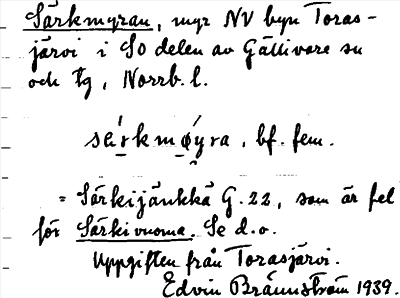 Särkmyran, myr NV byn Toras-
järvi i SO delen av Gällivare sn
och tg, Norrb. l.
særkmøyra, bf. fem.
= Särkijänkkä G. 22, som är fel
för Särkivuoma. Se d. o.
Uppgiften från Torasjärvi.
Edvin Brännström 1939.